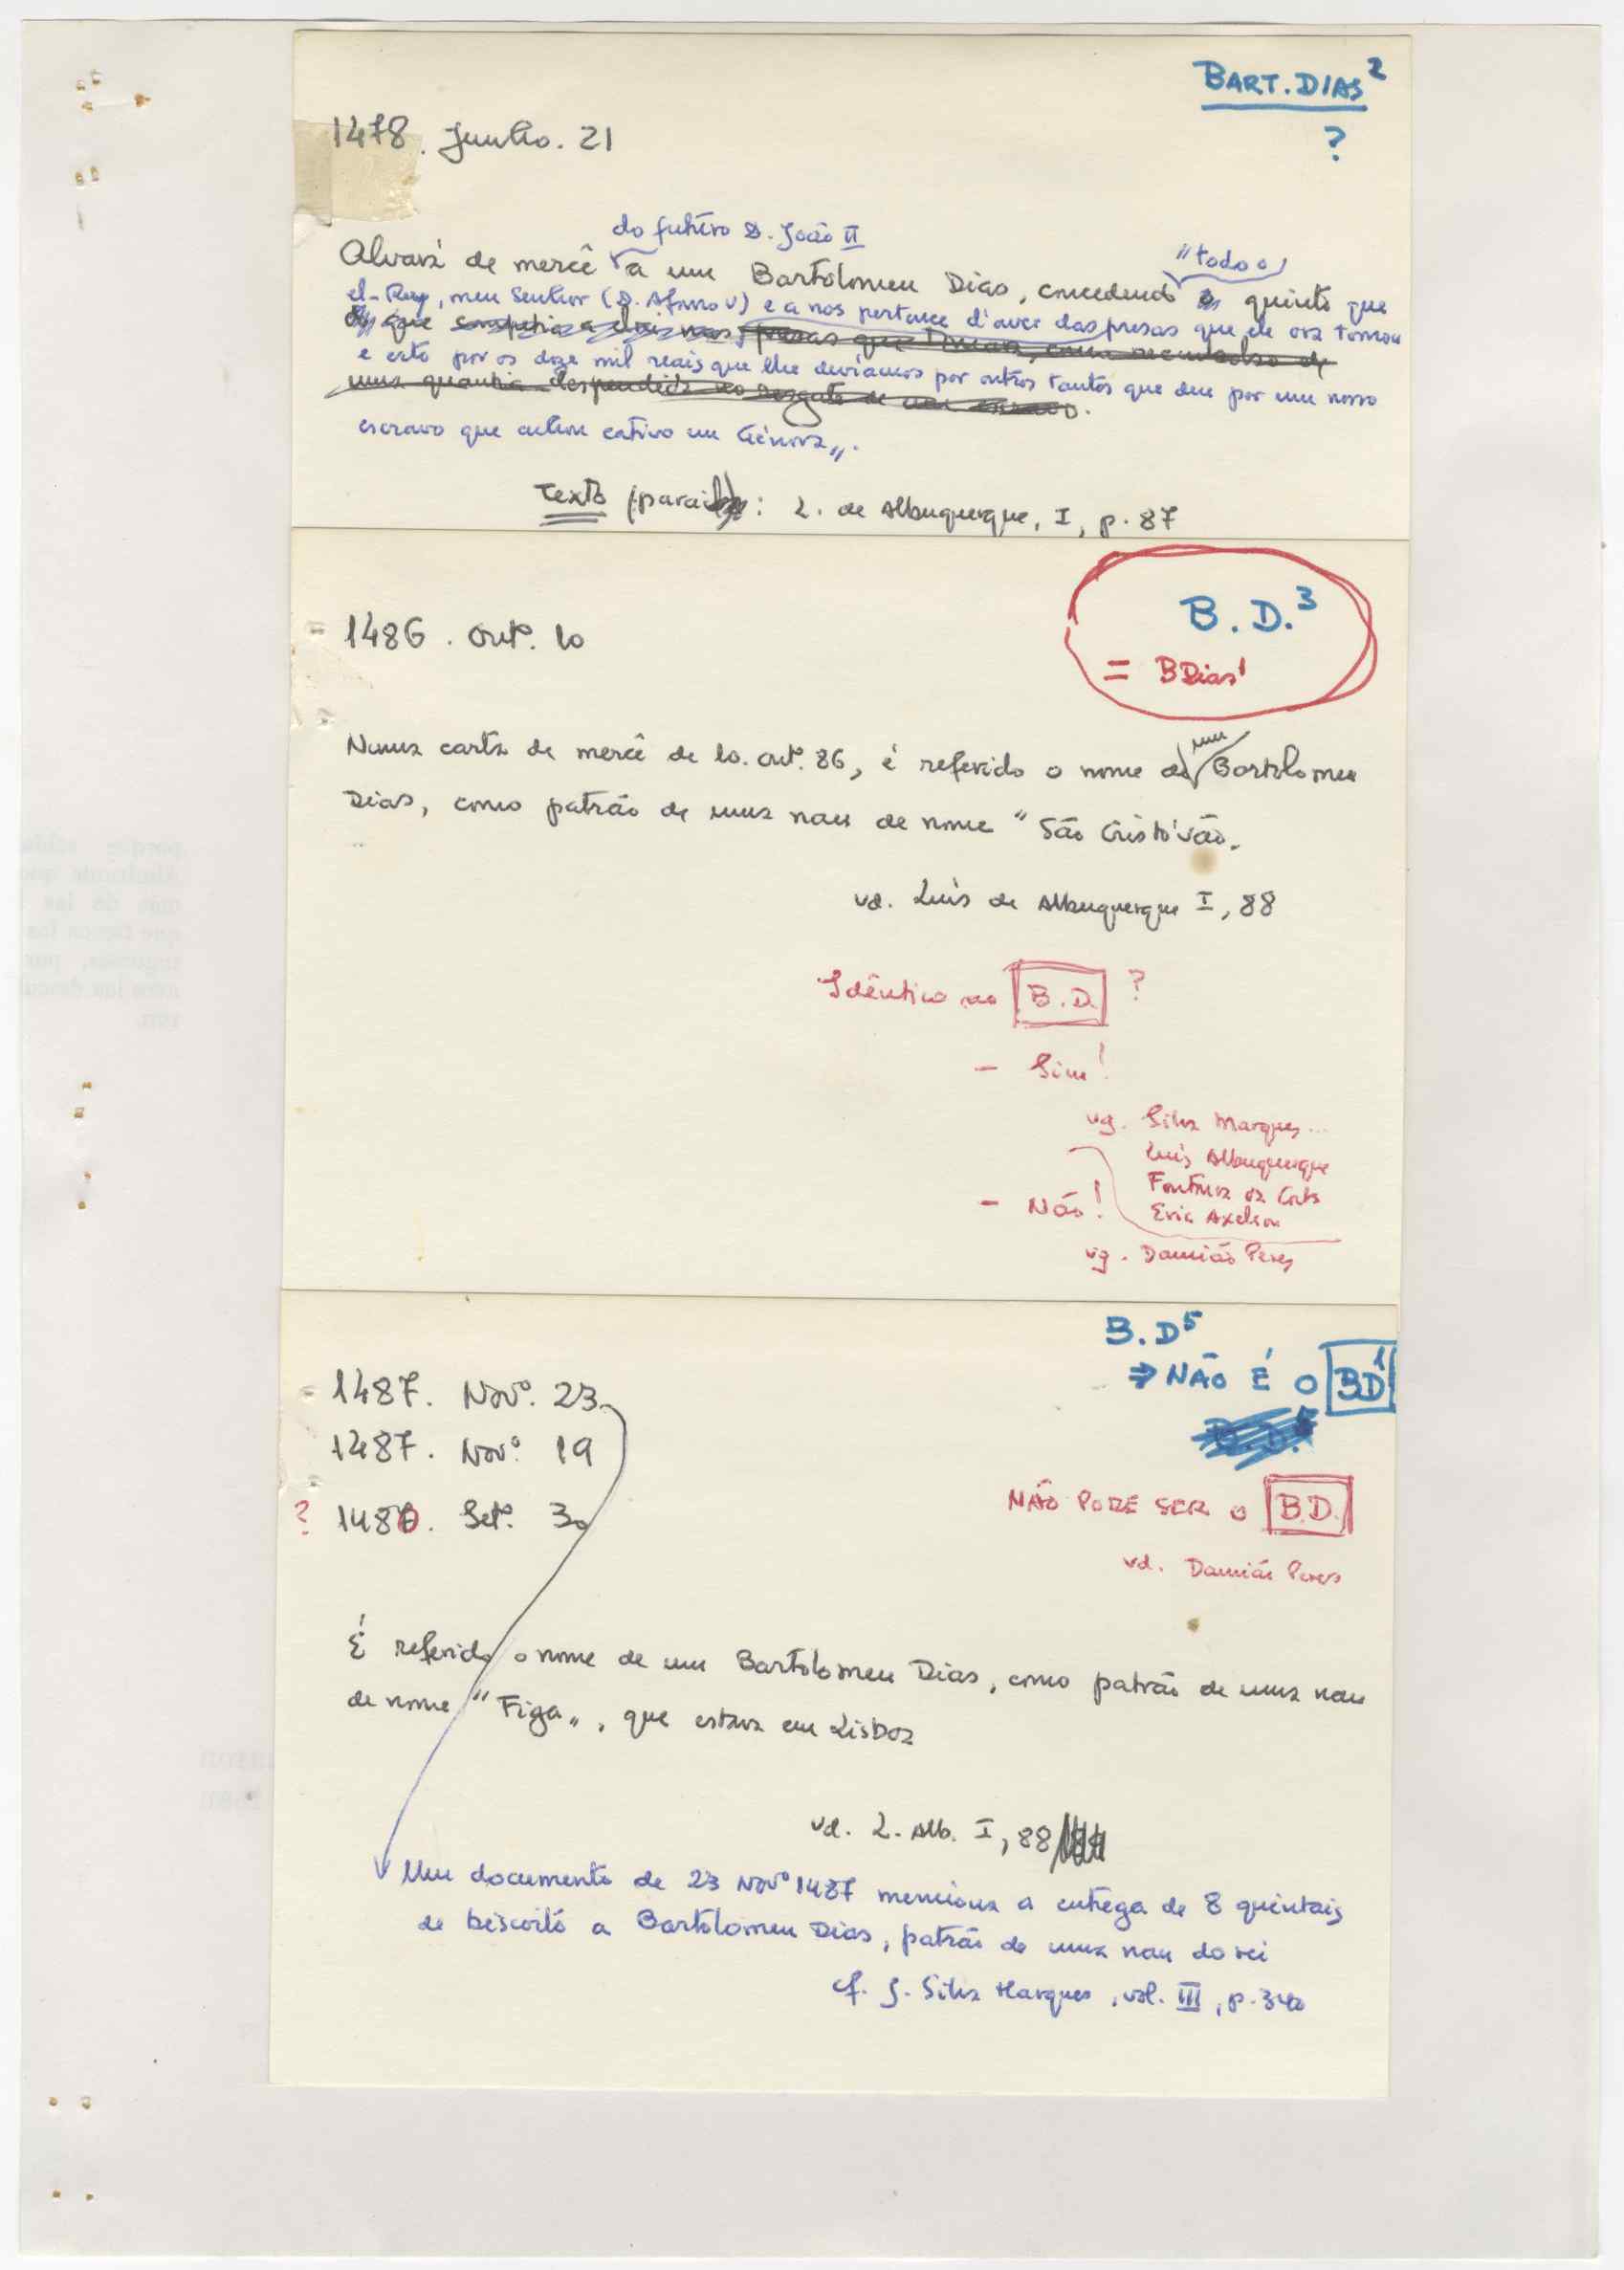 BART. DIAS²
?
1478. Junho. 21
do futuro D. João II
Alvará de mercê a um Bartolomeu Dias, concedendo "todo o quinto que
el-Rey, meu Senhor (D. Afonso V) e a nos pertence d'aver das presas que ele ora tomou
que competia a el-rei nas presas que tomara, como reembolso de
e esto por os doze mil reais que lhe devíamos por outros tantos que deu por um nosso
uma quantia despendida no resgate de um escravo.
escravo que achou cativo em Génova".
Texto (parcial): L. de Albuquerque, I, p. 87
B. D.³
= BDias¹
1486. Outº. 10
Numa carta de mercê de 10. outº. 86, é referido o nome de um Bartolomeu
Dias, como patrão de uma nau de nome "São Cristóvão.
vd. Luís de Albuquerque I, 88
Idêntico ao B.D. ?
- Sim!
vg. Silva Marques...
Luís Albuquerque
Fontoura da Costa
Eric Axelson
- Não!
vg. Damião Peres
B. D⁵
⇒ NÃO É O BD¹
1487. Novº. 23
1487. Novº. 19
? 1480. Setº. 30
NÃO PODE SER O B.D.
vd. Damião Peres
É referido o nome de um Bartolomeu Dias, como patrão de uma nau
de nome "Figa", que estava em Lisboa
vd. L. Alb. I, 88
Um documento de 23 Novº 1487 menciona a entrega de 8 quintais
de biscoito a Bartolomeu Dias, patrão de uma nau do rei
cf. J. Silva Marques, vol. III, p. 340